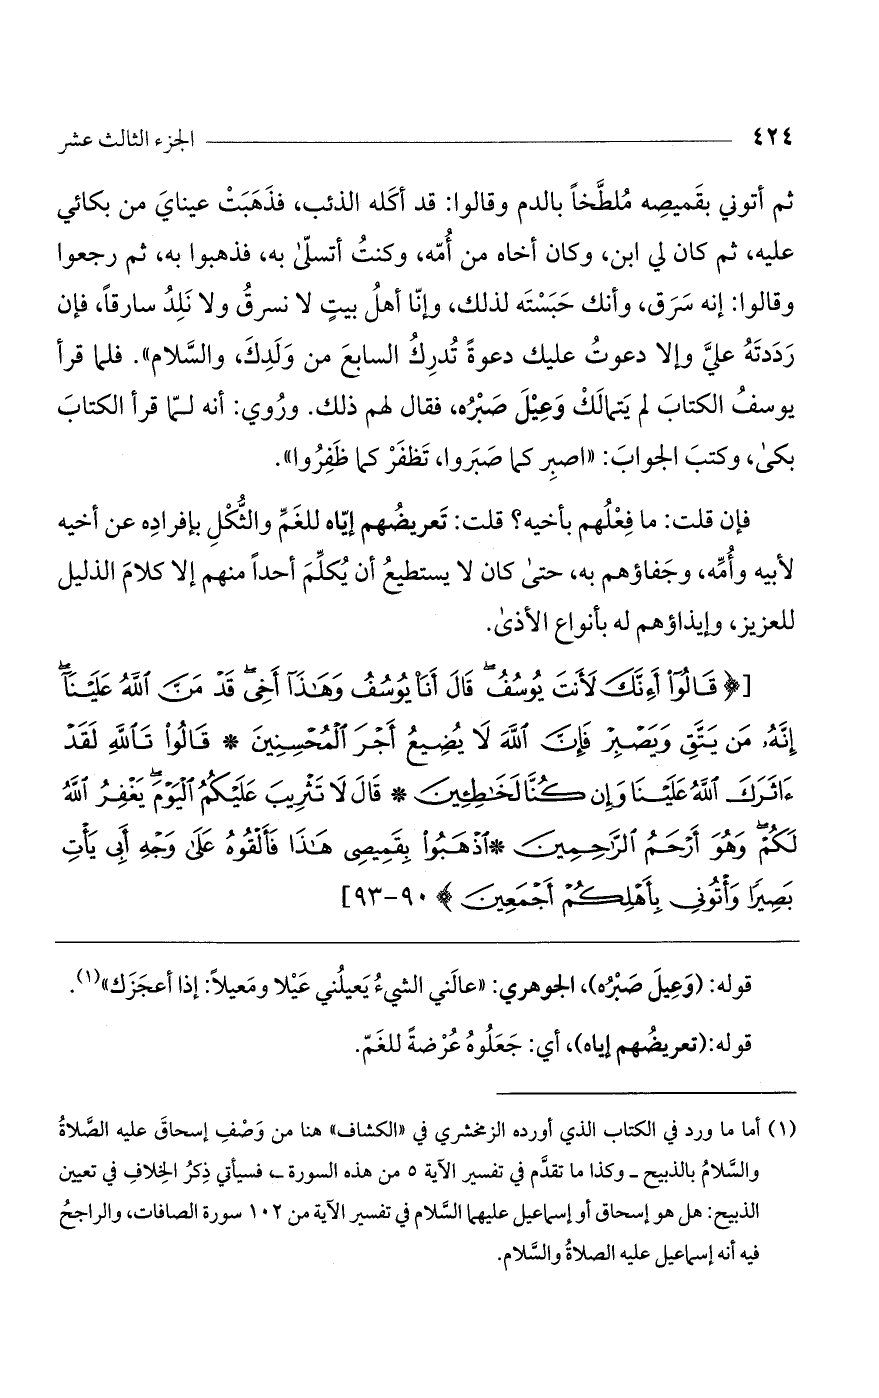 ٤٢٤ الجزء الثالث عشر
ثم أتوني بقَميصِه مُلطَّخاً بالدم وقالوا: قد أكَله الذئب، فذَهَبَتْ عينايَ من بكائي
عليه، ثم كان لي ابن، وكان أخاه من أُمّه، وكنتُ أتسلّىٰ به، فذهبوا به، ثم رجعوا
وقالوا: إنه سَرَق، وأنك حَبَسْتَه لذلك، وإنّا أهلُ بيتٍ لا نسرقُ ولا نَلِدُ سارقاً، فإن
رَدَدتَهُ عليَّ وإلا دعوتُ عليك دعوةً تُدرِكُ السابعَ من وَلَدِكَ، والسَّلام». فلما قرأ
يوسفُ الكتابَ لم يَتمالَكْ وَعِيْلَ صَبْرُه، فقال لهم ذلك. ورُوي: أنه لـمّا قرأ الكتابَ
بكىٰ، وكتبَ الجوابَ: «اصبِر كما صَبَروا، تَظفَرْ كما ظَفِرُوا».
فإن قلت: ما فِعْلُهم بأخيه؟ قلت: تَعريضُهم إيّاه للغَمِّ والثُّكْلِ بإفرادِه عن أخيه
لأبيه وأُمِّه، وجَفاؤهم به، حتىٰ كان لا يستطيعُ أن يُكلِّمَ أحداً منهم إلا كلامَ الذليل
للعزيز، وإيذاؤهم له بأنواع الأذىٰ.
[﴿ قَالُوٓا۟ أَءِنَّكَ لَأَنتَ يُوسُفُ ۖ قَالَ أَنَا۠ يُوسُفُ وَهَـٰذَآ أَخِى ۖ قَدْ مَنَّ ٱللَّهُ عَلَيْنَآ ۖ
إِنَّهُۥ مَن يَتَّقِ وَيَصْبِرْ فَإِنَّ ٱللَّهَ لَا يُضِيعُ أَجْرَ ٱلْمُحْسِنِينَ * قَالُوا۟ تَٱللَّهِ لَقَدْ
ءَاثَرَكَ ٱللَّهُ عَلَيْنَا وَإِن كُنَّا لَخَـٰطِـِٔينَ * قَالَ لَا تَثْرِيبَ عَلَيْكُمُ ٱلْيَوْمَ ۖ يَغْفِرُ ٱللَّهُ
لَكُمْ ۖ وَهُوَ أَرْحَمُ ٱلرَّٰحِمِينَ *ٱذْهَبُوا۟ بِقَمِيصِى هَـٰذَا فَأَلْقُوهُ عَلَىٰ وَجْهِ أَبِى يَأْتِ
بَصِيرًا وَأْتُونِى بِأَهْلِكُمْ أَجْمَعِينَ ﴾ ٩٠-٩٣]
قوله: (وَعِيلَ صَبْرُه)، الجوهري: «عالَني الشيءُ يَعيلُني عَيْلا ومَعيلاً: إذا أعجَزَك»(١).
قوله:(تعريضُهم إياه)، أي: جَعَلُوهُ عُرْضةً للغَمّ.
(١) أما ما ورد في الكتاب الذي أورده الزمخشري في «الكشاف» هنا من وَصْفِ إسحاقَ عليه الصَّلاةُ
والسَّلامُ بالذبيح - وكذا ما تقدَّم في تفسير الآية ٥ من هذه السورة -، فسيأتي ذِكرُ الخِلافِ في تعيين
الذبيح: هل هو إسحاق أو إسماعيل عليهما السَّلام في تفسير الآية من ١٠٢ سورة الصافات، والراجحُ
فيه أنه إسماعيل عليه الصلاةُ والسَّلام.